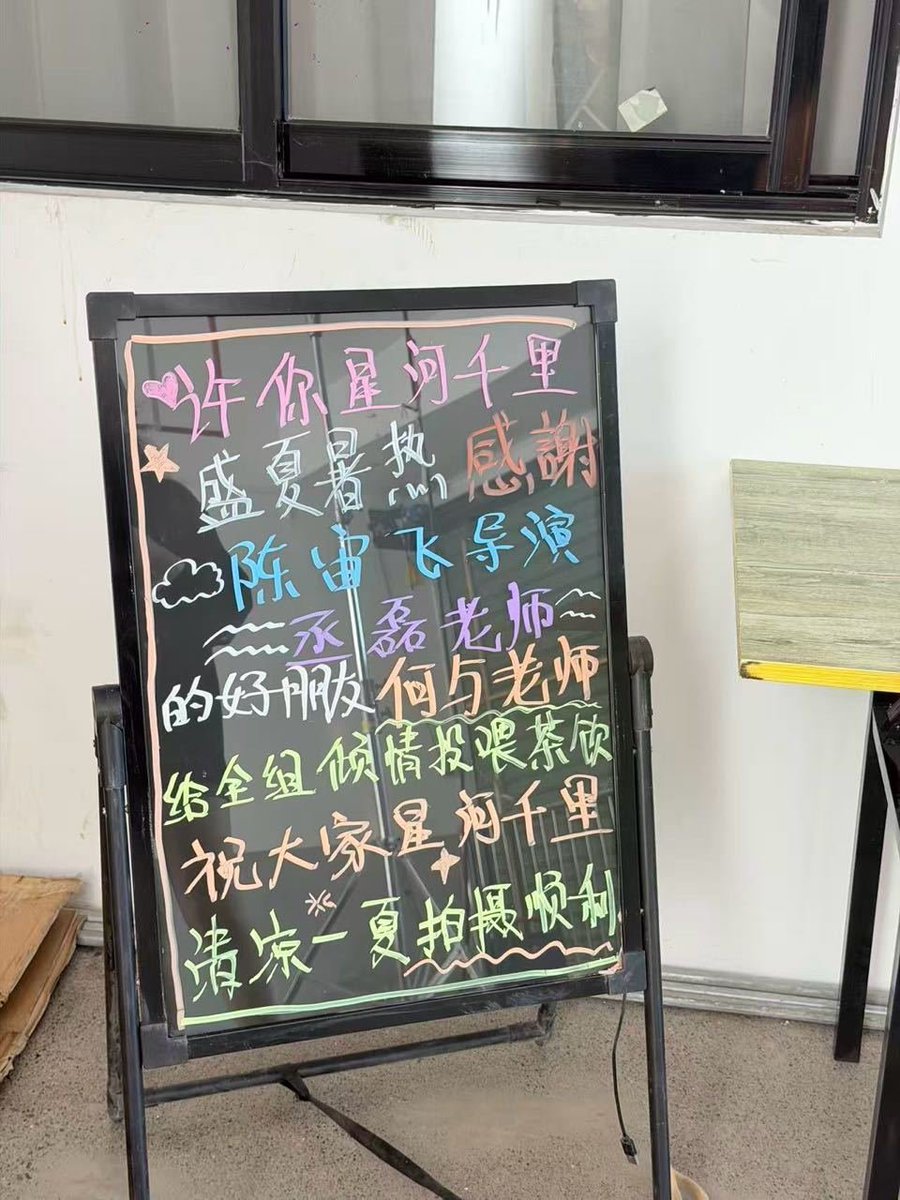 许你星河千里
盛夏暑热 感謝
陈宙飞导演
丞磊老师
的好朋友何与老师
给全组倾情投喂茶饮
祝大家星河千里
清凉一夏拍摄顺利